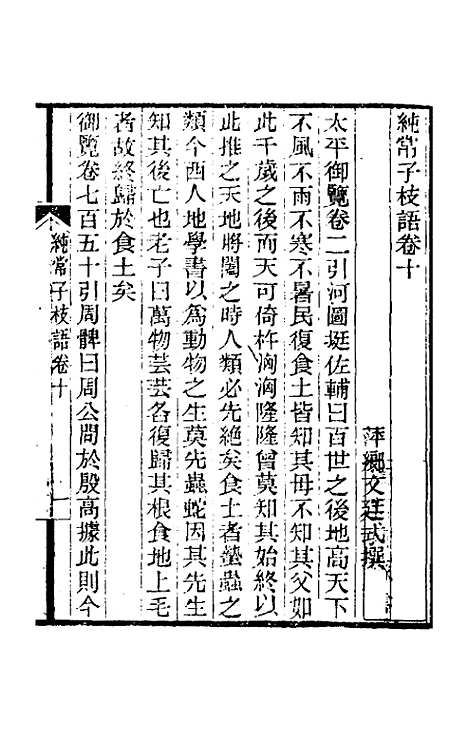 純常子枝語卷十
萍鄉文廷式撰
太平御覽卷二引河圖挺佐輔曰百世之後地高天下
不風不雨不寒不暑民復食土皆知其母不知其父如
此千歲之後而天可倚杵洶洶隆隆曾莫知其始終以
此推之天地將闔之時人類必先絕矣食土者蟄蟲之
類今西人地學書以為動物之生莫先蟲蛇因其先生
知其後亡也老子曰萬物芸芸各復歸其根食地上毛
者故終歸於食土矣
御覽卷七百五十引周髀曰周公問於殷高據此則今
純常子枝語卷十
一